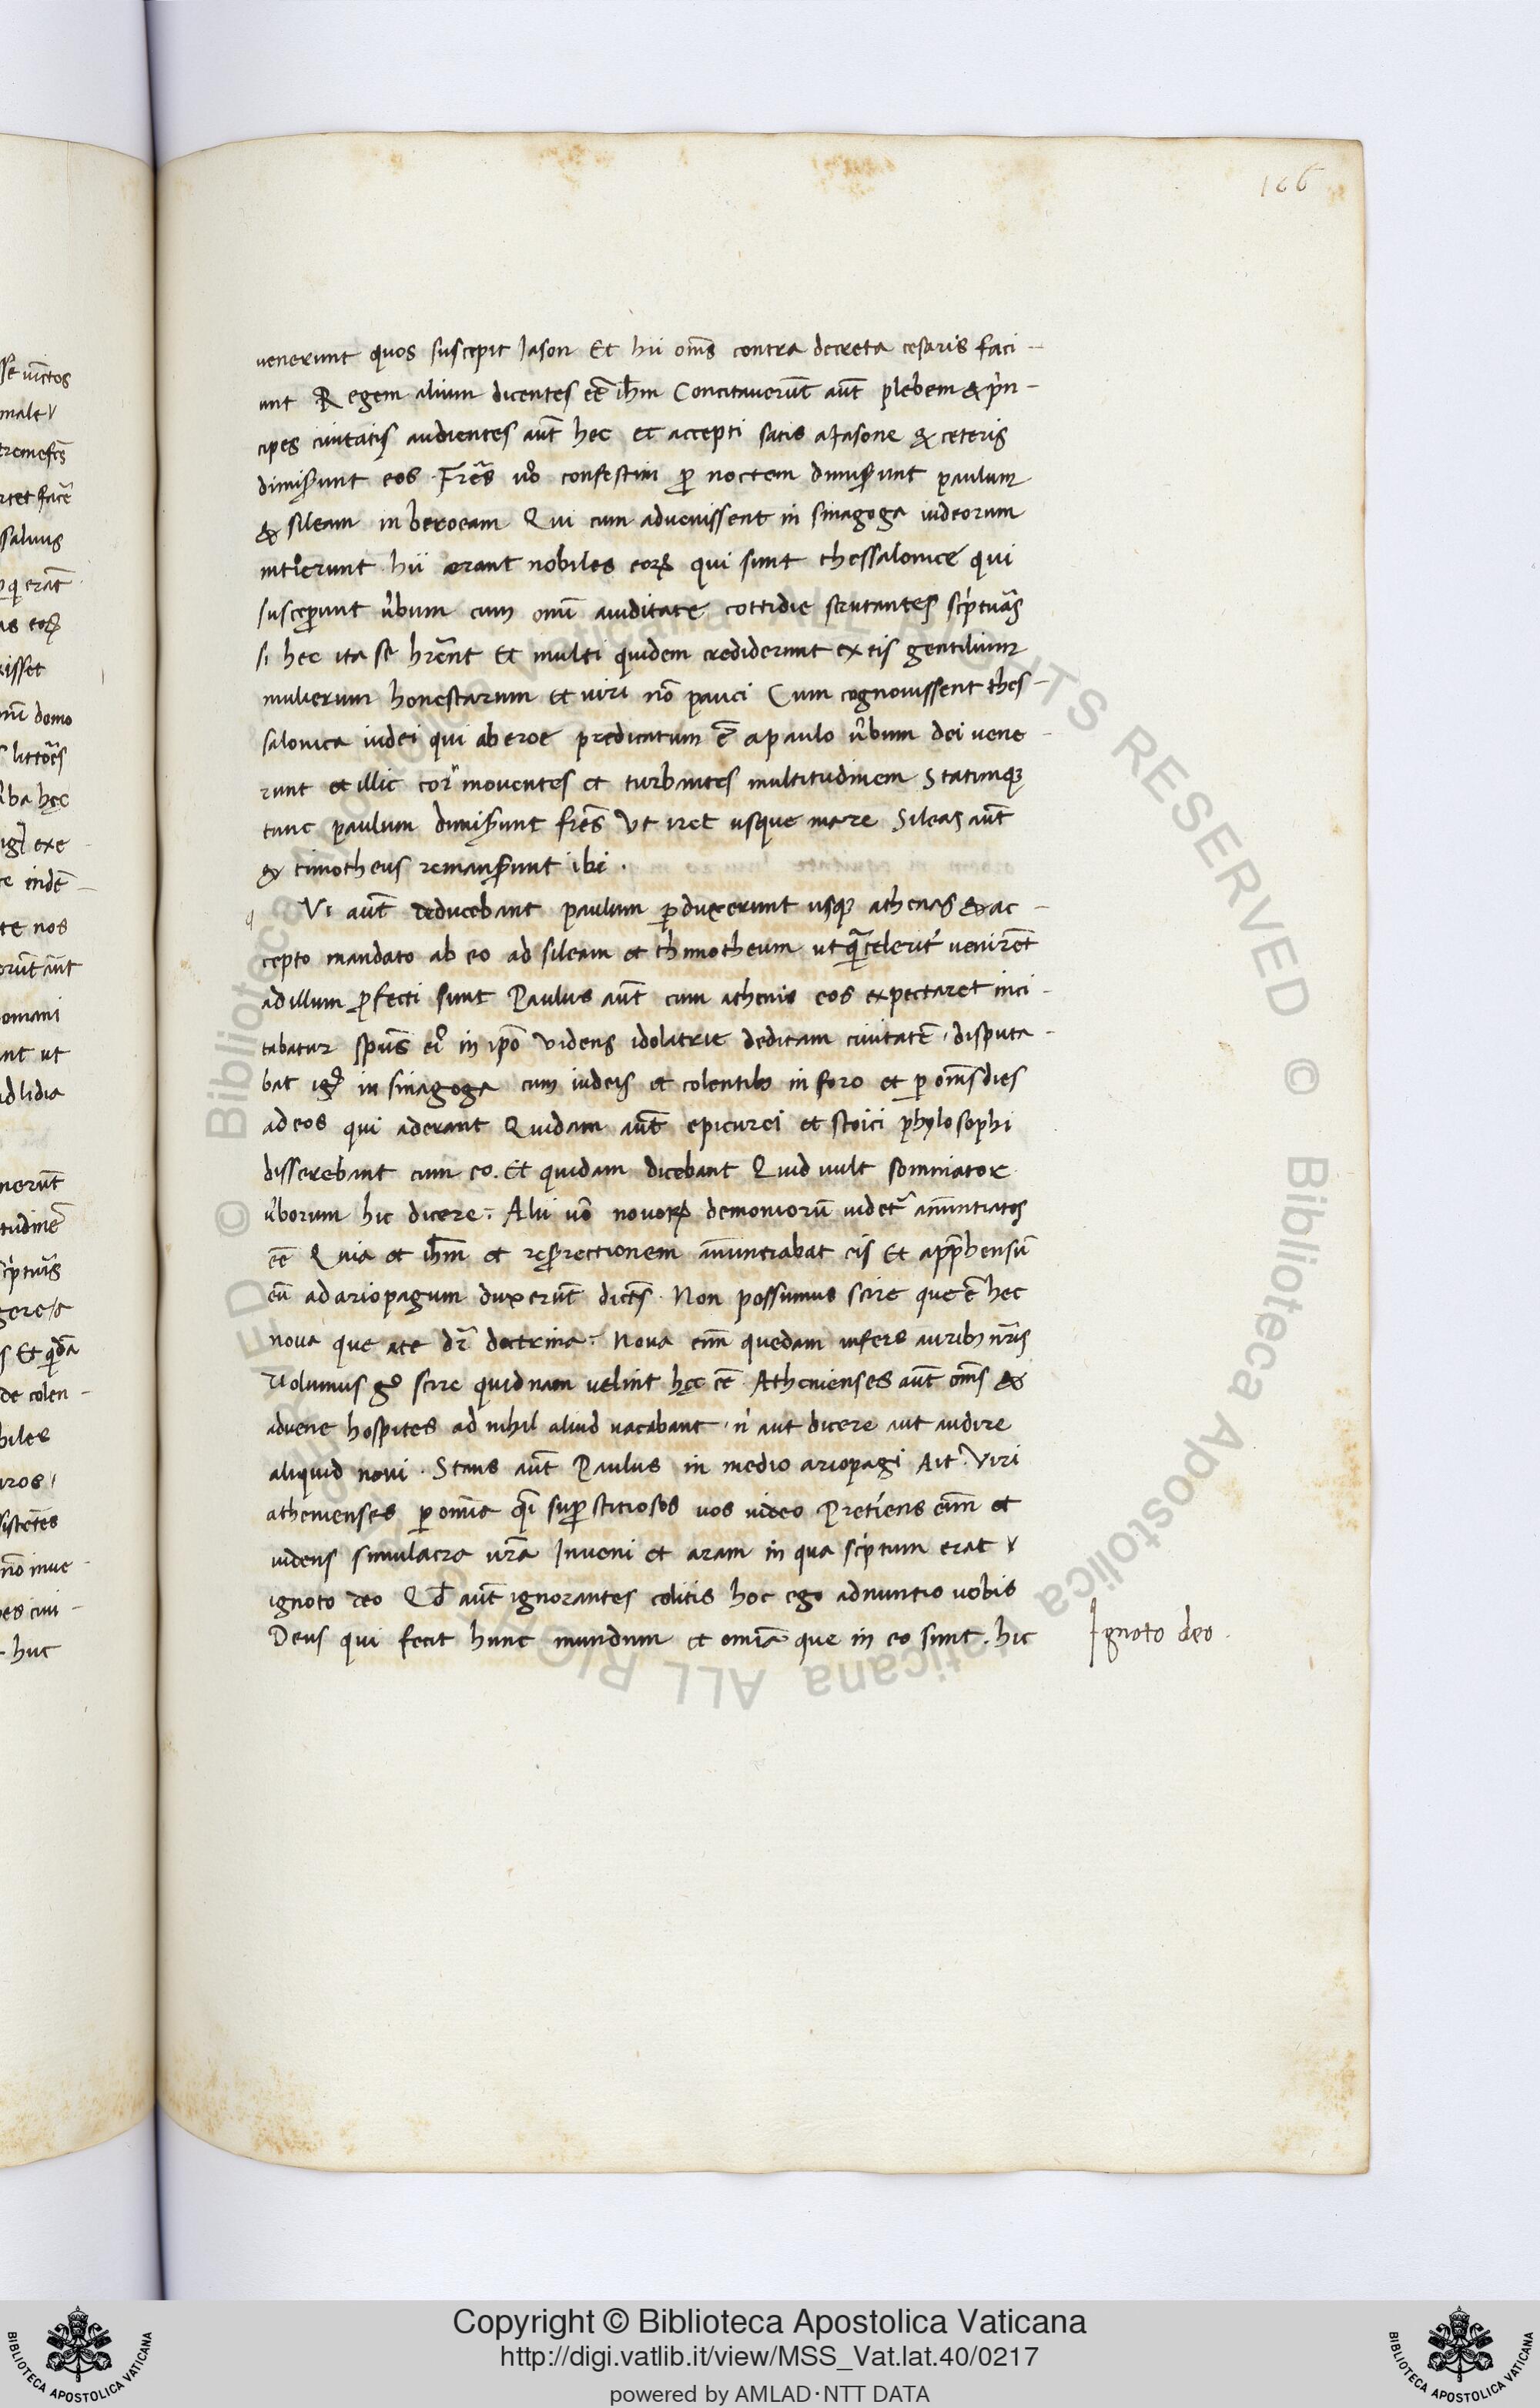 166
venerunt quos suscepit Iason Et hii om̄s contra decreta cesaris faci-
unt Regem alium dicentes eē ihm̄ Concitaverūt aūt plebem & prin-
cipes ciuitatis audientes aūt hec et accepti satis a Iasone & ceteris
dimiserunt eos. Frēs uo confestim p noctem dimiserunt paulum
& sileam in beroeam Qui cum aduenissent in sinagoga iudeorum
introierunt. hii erant nobiles eorꝝ qui sunt thessalonice qui
susceperunt ūbum cum omī auiditate cottidie scrutantes scripturas
si hec ita se hrēnt Et multi quidem crediderunt ex eis gentilium
mulierum honestarum et uiri nō pauci Cum cognouissent thes-
salonica iudei qui a beroe predicatum ē a paulo ūbum dei uene-
runt et illic cōmouentes et turbantes multitudinem Statimqꝫ
tunc paulum dimiserunt frēs Vt iret usque mare Sileas aūt
& timotheus remanserunt ibi.
q Vi aūt deducebant paulum pduxerunt usqꝫ athenas & ac-
cepto mandato ab eo ad sileam et thimotheum ut q̄ celerit̄ venirēt
ad illum pfecti sunt Paulus aūt cum athenis eos expectaret inci-
tabatur spūs ei in ipō videns idolatrie deditam ciuitatē. disputa-
bat igr̄ in sinagoga cum iudeis et colentibꝫ in foro et p om̄s dies
ad eos qui aderant Quidam aūt epicurei et stoici phylosophi
disserebant cum eo. Et quidam dicebant Quid uult somniator
ūborum hic dicere: Alii uō nouorꝝ demoniorū uidet̄ annuntiator
eē Quia et ihm̄ et resurrectionem annuntiabat eis Et apphensū
eū ad ariopagum duxerūt dictēs. Non possumus scire que ē hec
nova que a te dr̄ doctrina: Nova enī quedam infers auribꝫ nrīs
Uolumus gͦ scire quidnam uelint hęc eē. Athenienses aūt om̄s &
aduene hospites ad nihil aliud uacabant. n̄ aut dicere aut audire
aliquid noui. Stans aūt Paulus in medio ariopagi Ait: Viri
athenienses p omīa q̄i supstitiosos uos uideo Preti̇ens enī et
uidens simulacra urā Inueni et aram in qua scriptum erat
ignoto deo Qd̄ aūt ignorantes colitis hoc ego adnuntio uobis
Deus qui fecit hunc mundum et omīa que in eo sunt. hic
Ignoto deo.
Copyright © Biblioteca Apostolica Vaticana
http://digi.vatlib.it/view/MSS_Vat.lat.40/0217
powered by AMLAD·NTT DATA